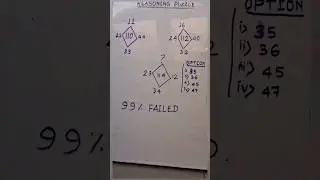 REASONING PUZZLE
OPTION
i) 35
ii) 36
iii) 45
iv) 47
11
110 44
33
16
24 112 40
32
?
23 114 12
34
i) 35
ii) 36
iii) 45
iv) 47
OPTION
99% FAILED